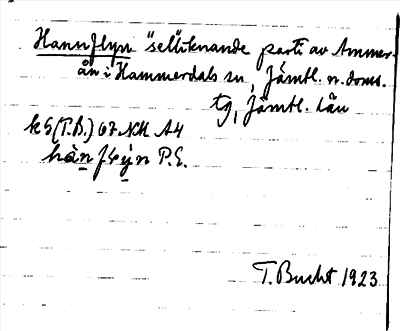 Hannflyn "selliknande parti av Ammer-
ån i Hammerdals sn, Jämtl. n. doms.
tg, Jämtl. län
k5 (T.B.) 67 NM A4
hàn flýn P.E.
T. Bucht 1923